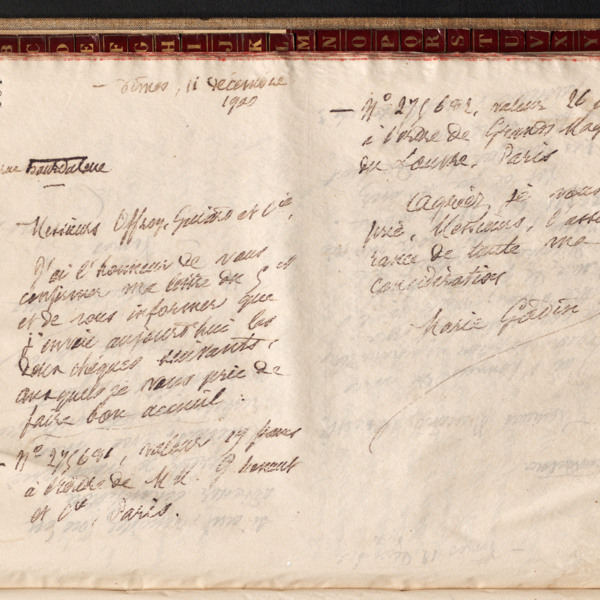 B C D E F G H I J K L M N O P Q R S T U V X
11 Décembre
1900
rue
Messieurs Offroy, Guiard et Cie,
J'ai l'honneur de vous
confirmer ma lettre du 5 ct
et de vous informer que
j'envoie aujourd'hui les
deux chèques suivants,
auxquels je vous prie de
faire bon accueil :
— No 275681, valeur 19 francs
à l'ordre de M M.
et Cie, Paris.
— No 275682, valeur 26
à l'ordre de Grands Mag
du Louvre, Paris
Agréer, je vous
prie, Messieurs, l'assu
rance de toute ma
considération
Marie Godin